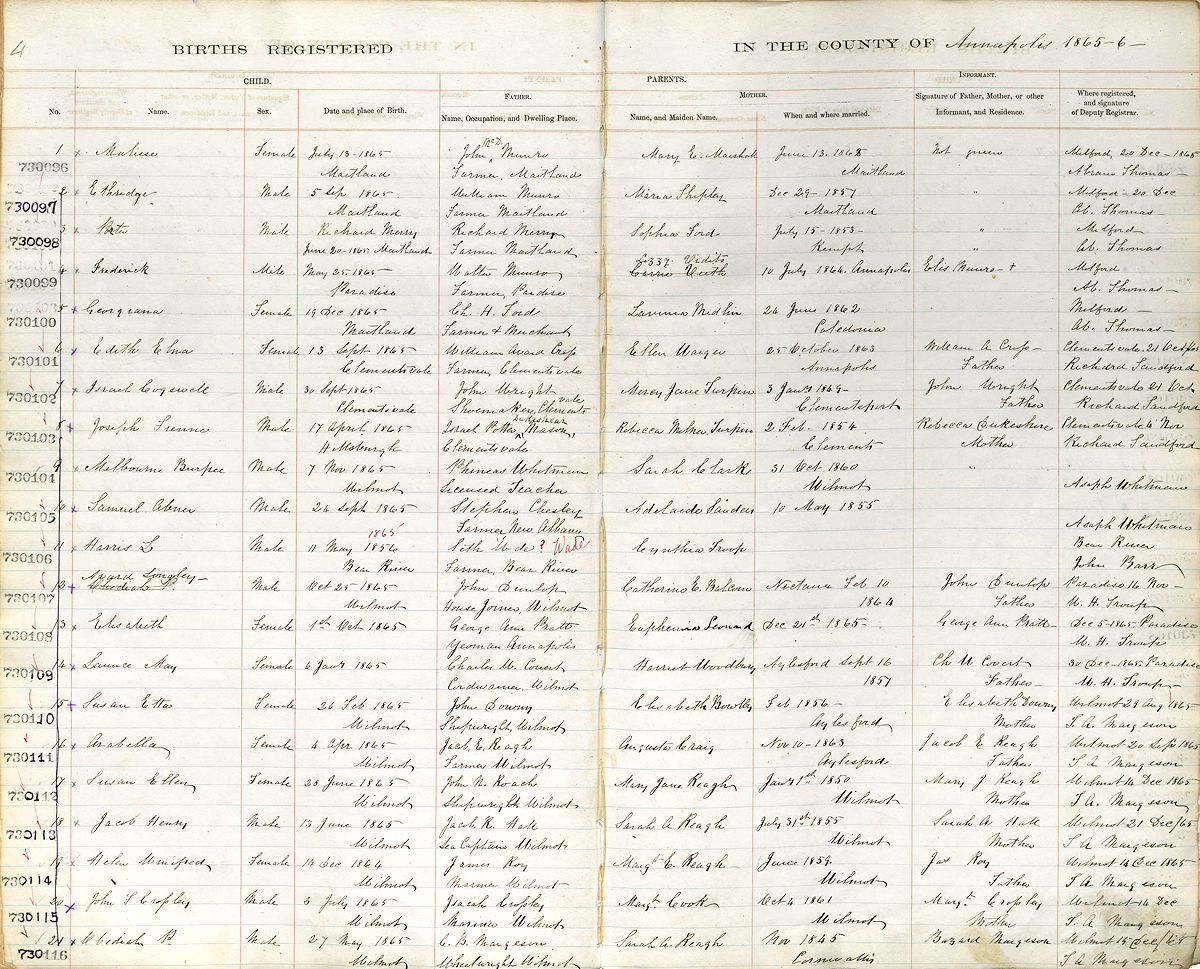 4
BIRTHS REGISTERED IN THE COUNTY OF Annapolis 1865-6-
CHILD. PARENTS. INFORMANT.
FATHER. MOTHER. Signature of Father, Mother, or other Where registered,
and signature
No. Name. Sex. Date and place of Birth. Name, Occupation, and Dwelling Place. Name, and Maiden Name. When and where married. Informant, and Residence. of Deputy Registrar.
1 x Melissa Female July 13-1865 John McD. Munro Mary E. Marshall June 13. 1865 Not given Milford, 20 Dec-1865
730096 Maitland Farmer, Maitland Maitland Abram Thomas-
2 x Ethridge Male 5 Sep 1865 William Munro Maria Shipley Dec 29-1857 " Milford-20 Dec
730097 Maitland Farmer Maitland Maitland Ab. Thomas-
3 x Male Richard Merry Richard Merry Sophia Ford July 15-1853- " Milford
730098 June 20-1865 Maitland Farmer Maitland Kempt " Ab. Thomas
4 x Frederick Male May 25 1865 Walter Munro Carrie Veith 10 July 1864. Annapolis Elis Munro- + Milford
730099 Paradise Farmer, Pardise Ab. Thomas-
5 x Georgiana Female 19 Dec 1865 Ch. H. Ford Lavinia 24 June 1862 Milford-
730100 Maitland Farmer & Merchant Caledonia Ab. Thomas-
6 x Edith Elna Female 13 Sept 1865 William Avard Crop Ellen 25 October 1863 William A Crop- Clementsvale. 21 Oct/65
730101 Clementsvale Farmer, Clementsvale Annapolis Father Richard Sandford
7 x Israel Cogswell Male 30 Sept 1865 John Wright Mercy Jane Turpin 3 Jany 1849- John Wright Clementsvale 21 Oct
730102 Clementsvale Shoemaker, Clementsvale Clementsport Father Richard Sandford
8 x Joseph Male 17 April 1865 Israel Potter Dukeshear Mason, Rebecca Milner Turpin 2 Feb. 1854 Rebecca Dukeshire Clementsvale 4 Nov
730103 Hillsburgh Clementsvale Clements Mother Richard Sandford
9 Melbourne Burpee Male 7 Nov 1865 Phineas Whitman Sarah Clark 31 Oct 1860 "
730104 Wilmot Licensed Teacher Wilmot Asaph Whitman
10 x Samuel Abner Male 26 Sept 1865 Stephen Chesley Adelaide Sanders 10 May 1855
730105 Farmer New Albany Asaph Whitman
11 x Harris L Male 11 May 1856 1865 Seth Wade? Wade Cynthia Troop Bear River
730106 Bear River Farmer, Bear River John Barr
12 x Avard Longley- Obediah P. Male Oct 25 1865 John Dunlop Catherine E. Balcom Nictaux Feb 10 John Dunlop Paradise 14 Nov-
730107 Wilmot House Joiner, Wilmot 1864 Father W. H. Troup
13 x Elisabeth Female 1st Oct 1865 George Ann Pratt Euphemia Leonard Dec 21st 1865- George Ann Pratt- Dec 5-1865. Paradise
730108 Yeoman Annapolis W. H. Troup
14 x Launce May Female 6 Jany 1865 Charles W. Covert Harriet Woodbury Aylesford Sept 16 Ch W Covert 30 Dec-1865. Paradise
730109 Cordwainer, Wilmot 1851 Father- W. H. Troup-
15 x Susan Etta Female 26 Feb 1865 John Downy Elisabeth Bowlby Feb 1856- Elisabeth Downy Wilmot 29 Aug 1865
730110 Wilmot Shipwright Wilmot Aylesford Mother S. A. Margeson
16 x Arabella Female 4 Apr 1865 Jacob E. Reagh Augusta Craig Nov 10-1863 Jacob E Reagh Wilmot 20 Sep 1865
730111 Wilmot Farmer Wilmot Aylesford Father S A Margeson
17 x Susan Ellen Female 28 June 1865 John N. Roach Mary Jane Reagh Jany 1st 1850 Mary J Reagh Wilmot 14 Dec 1865
730112 Wilmot Shipwright Wilmot Wilmot Mother S. A. Margeson
18 x Jacob Henry Male 13 June 1865 Jacob R. Hall Sarah A Reagh July 31st 1855 Sarah A Hall Wilmot 21 Dec/65
730113 Wilmot Sea Captain Wilmot Wilmot Mother S A. Margeson
19 x Helen Winifred Female 14 Dec 1864 James Roy Margt E. Reagh June 1859. Jas Roy Wilmot 14 Dec 1865
730114 Wilmot Mariner Wilmot Wilmot Father S A Margeson
20 x John S Cropley Male 3 July 1865 Isaiah Cropley Margt Cook Oct 4 1861 Margt Cropley Wilmot 14 Dec
730115 Wilmot Mariner Wilmot Wilmot Mother S. A Margeson
21 x Obediah P. Male 27 May 1865 C. B. Margeson Sarah A. Reagh Nov 1845 Margeson Wilmot 15 Dec/65
730116 Wilmot Wheelwright Wilmot Cornwallis S A Margeson